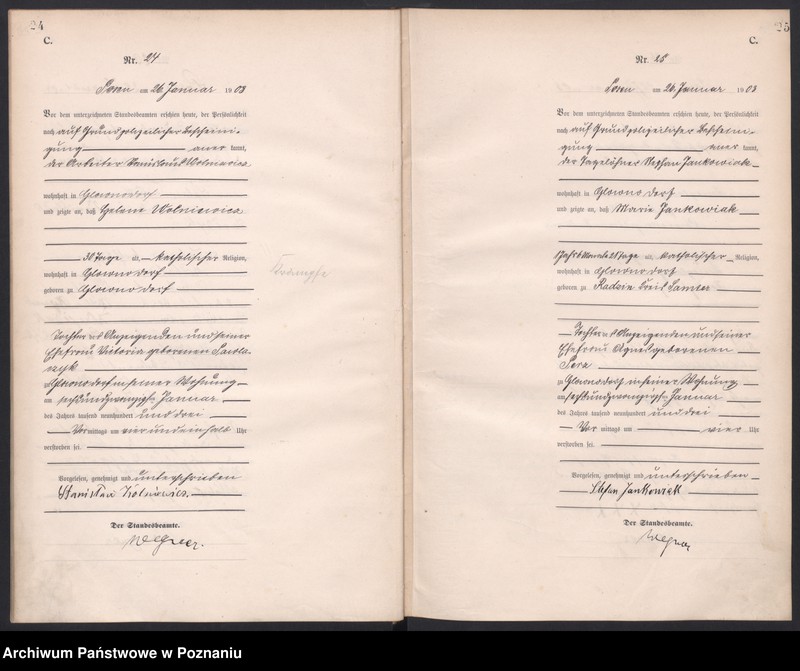 24
C.
Nr. 24
Posen am 26 Januar 1903
Vor dem unterzeichneten Standesbeamten erschien heute, der Persönlichkeit
nach auf Grund polizeilicher Bescheini-
gung aner kannt,
der Arbeiter Stanislaus Wolniewicz
wohnhaft in Glowno Dorf
und zeigte an, daß Helene Wolniewicz
30 Tage alt, katholischer Religion,
wohnhaft in Glowno Dorf
geboren zu Glowno Dorf
Krämpfe
Tochter des Anzeigenden und seiner
Ehefrau Victoria geborenen
zu Glowno Dorf in seiner Wohnung
am sechsundzwanzigsten Januar
des Jahres tausend neunhundert und drei
Vor mittags um vier und einhalb Uhr
verstorben sei.
Vorgelesen, genehmigt und unterschrieben
Der Standesbeamte.
25
C.
Nr. 25
Posen am 26. Januar 1903
Vor dem unterzeichneten Standesbeamten erschien heute, der Persönlichkeit
nach auf Grund polizeilicher Bescheini-
gung aner kannt,
der Tagelöhner Stephan Jankowiak
wohnhaft in Glowno Dorf
und zeigte an, daß Marie Jankowiak
alt, katholischer Religion,
wohnhaft in Glowno Dorf
geboren zu Radzin Kreis Samter
Tochter des Anzeigenden und seiner
Ehefrau Agnes geborenen
zu Glowno Dorf in seiner Wohnung
am sechsundzwanzigsten Januar
des Jahres tausend neunhundert und drei
Vor mittags um vier Uhr
verstorben sei.
Vorgelesen, genehmigt und unterschrieben
Der Standesbeamte.
Archiwum Państwowe w Poznaniu